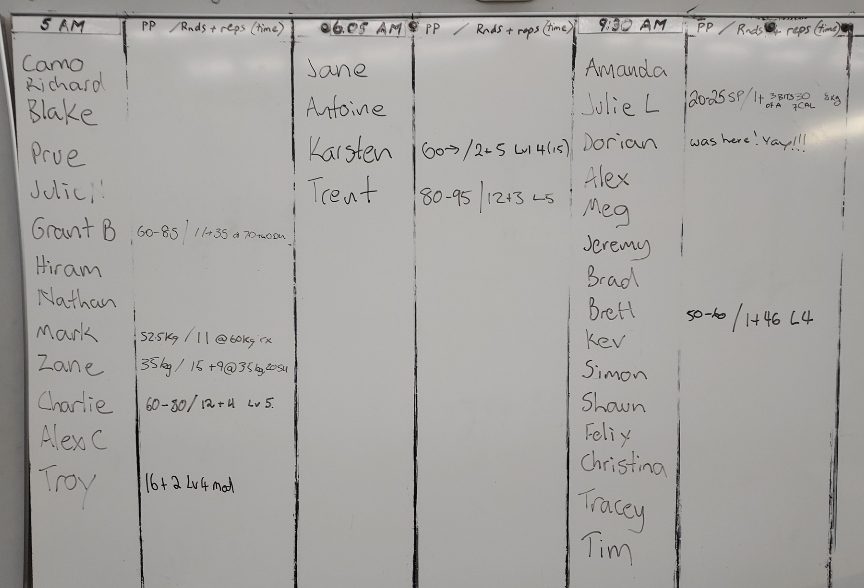 5 AM PP / Rnds + reps (time)
Camo
Richard
Blake
Prue
Julie!!
Grant B 60-85 / 11+35 @
Hiram
Nathan
Mark 52.5kg / 11 @ 60kg rx
Zane 35kg / 15 +9 @ 35kg
Charlie 60-80 / 12+4 Lv 5.
Alex C
Troy 16+2 Lv 4 mod
6:05 AM PP / Rnds + reps (time)
Jane
Antoine
Karsten 60→ / 2+5 Lvl 4 (15)
Trent 80-95 / 12+3 L5
9:30 AM PP / Rnds + reps (time)
Amanda
Julie L 20-25 SP / 1+ 3 BITS 30 8kg
OF A 7CAL
Dorian was here! Yay!!!
Alex
Meg
Jeremy
Brad
Brett 50-60 / 1+46 L4
Kev
Simon
Shawn
Felix
Christina
Tracey
Tim